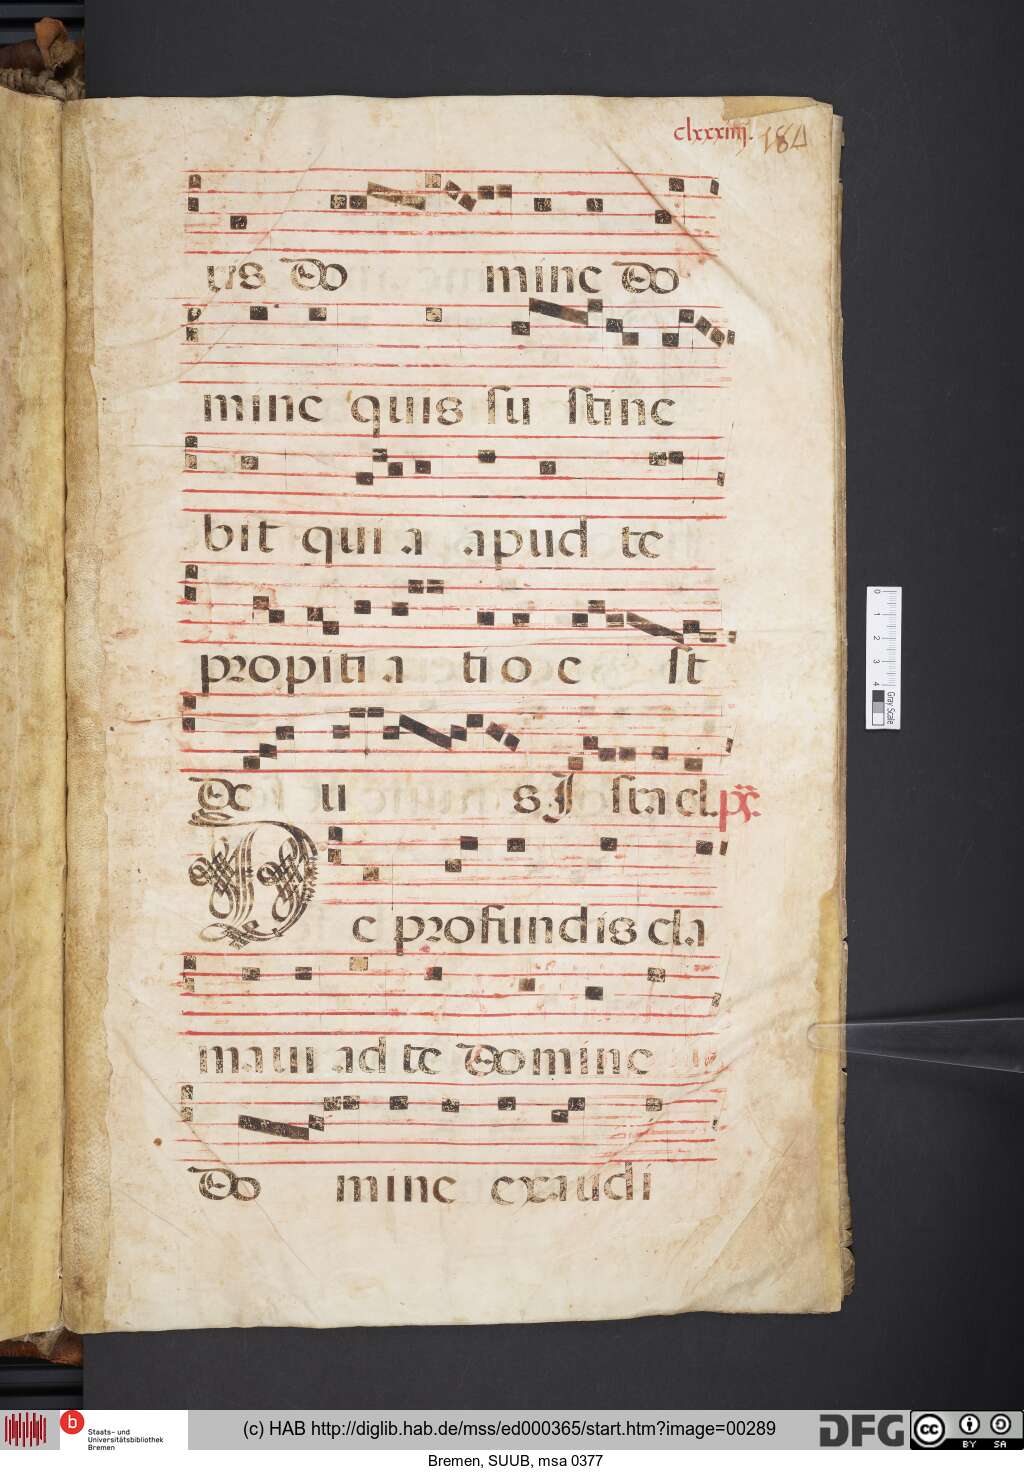 clxxxiiij. 184
us Do mine Do
mine quis su stine
bit quia apud te
propitia tio e st
De u s Israel. ps.
De profundis cla
maui ad te Domine
Do mine exaudi
0 1 2 3 4
Gray Scale
Staats- und
Universitätsbibliothek
Bremen
(c) HAB http://diglib.hab.de/mss/ed000365/start.htm?image=00289
DFG
cc BY SA
Bremen, SUUB, msa 0377